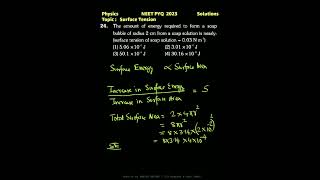 Physics NEET PYQ 2023 Solutions
Topic: Surface Tension
24. The amount of energy required to form a soap
bubble of radius 2 cm from a soap solution is nearly:
(surface tension of soap solution = 0.03 N m⁻¹)
(1) 5.06 × 10⁻⁴ J (2) 3.01 × 10⁻⁴ J
(3) 50.1 × 10⁻⁴ J (4) 30.16 × 10⁻⁴ J
Surface Energy ∝ Surface Area
Increase in Surface Energy = S
Increase in Surface Area
Total Surface Area = 2 × 4πr²
= 8πr²
= 8×3.14×(2×10⁻²)²
= 8×3.14×4×10⁻⁴